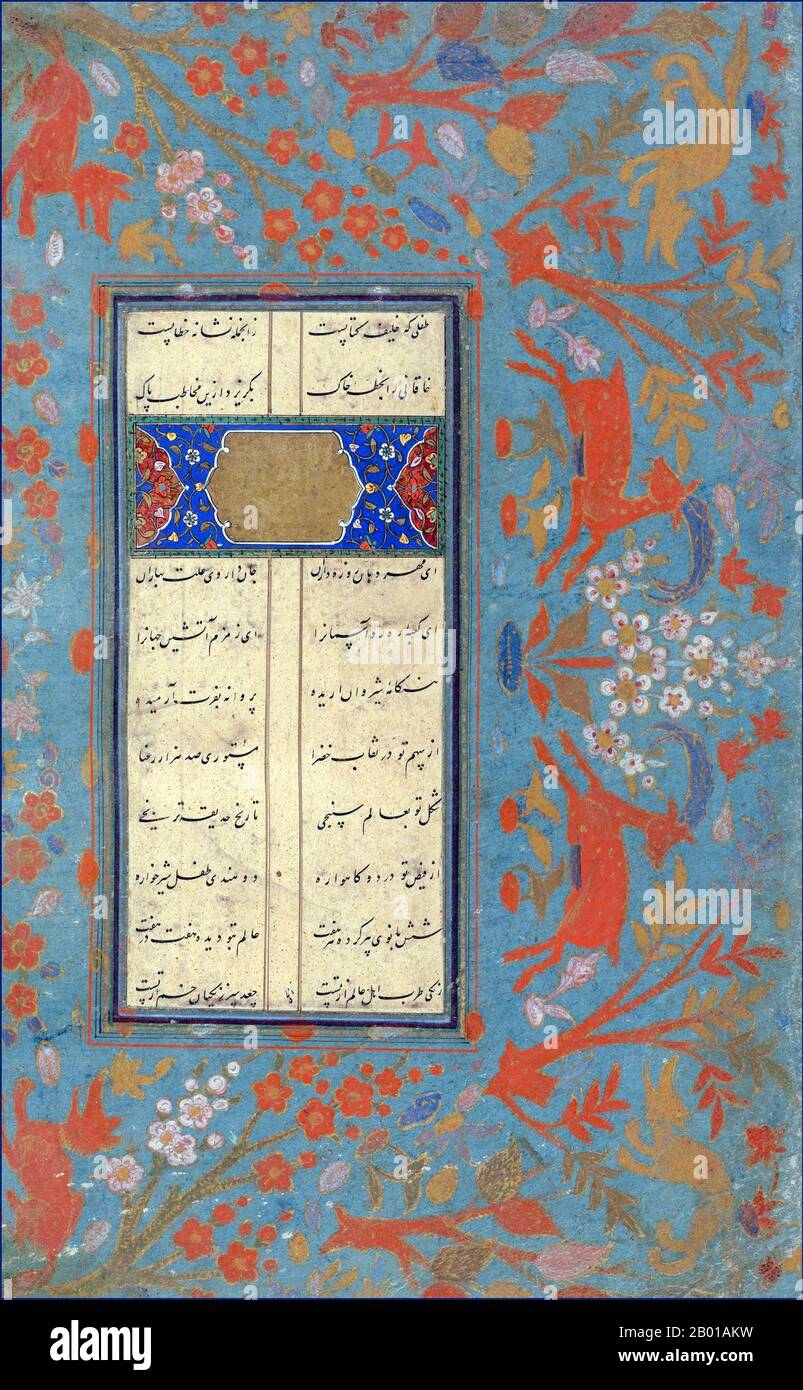 طفلی که خلیفه کتابست زانجمله نشانه خطابست
خاقانی را بخطه خاک ازین مخاطب پاک
ای مهر دهان روزه داران جان داروی علت بهاران
ای کعبه ره رو آسمانرا ای زمزم آتشین جهانرا
شبروان دریده پروانه آرمیده
از سهم تو در نقاب خضرا مستوری صد هزار رعنا
شکل تو بعالم سپنجی تاریخ حدیقه ترنجی
از فیض تو در دو کاهواره دو هندی طفل شیرخواره
شش بانوی پیر کرده هر هفت عالم بتو دیده هفت در هفت
طرب اهل عالم از تست جعد سر زنگیان خم از تست
alamy
Image ID: 2B01AKW
www.alamy.com